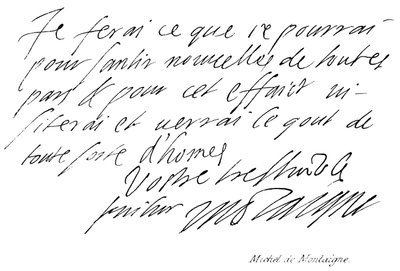 Je ferai ce que ie pourrai
pour santir nouuelles de toutes
pars & pour cet effaict ui-
siterai et uerrai le gout de
toute sorte d'homes
Vostre treshumble
seruitur Montaigne
Michel de Montaigne.